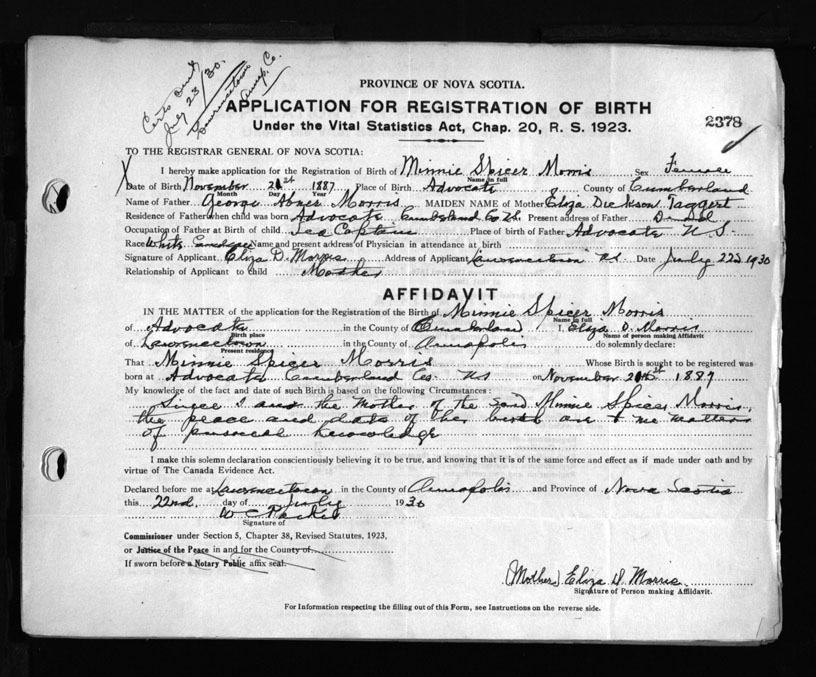 Certs Sent
July 23/30.
Lawrencetown
Annap. Co.
PROVINCE OF NOVA SCOTIA.
APPLICATION FOR REGISTRATION OF BIRTH
2378
Under the Vital Statistics Act, Chap. 20, R. S. 1923.
TO THE REGISTRAR GENERAL OF NOVA SCOTIA:
I hereby make application for the Registration of Birth of Minnie Spicer Morris Sex Female
Name in full
X Date of Birth November 21st 1887 Place of Birth Advocate County of Cumberland
Month Day Year
Name of Father George Abner Morris MAIDEN NAME of Mother Eliza Dickson Taggert
Residence of Father when child was born Advocate Cumberland Co Present address of Father
Occupation of Father at Birth of child Sea Captain Place of birth of Father Advocate N S
Race White Name and present address of Physician in attendance at birth
Signature of Applicant Eliza D. Morris Address of Applicant Lawrencetown N S Date July 22nd 1930
Relationship of Applicant to Child Mother
AFFIDAVIT
IN THE MATTER of the application for the Registration of the Birth of Minnie Spicer Morris
Name in full
of Advocate in the County of Cumberland I, Eliza D. Morris
Birth place Name of person making Affidavit
of Lawrencetown in the County of Annapolis do solemnly declare:
Present residence
That Minnie Spicer Morris Whose Birth is sought to be registered was
born at Advocate Cumberland Co. N S on November 21st 1887
My knowledge of the fact and date of such Birth is based on the following Circumstances:
Since I am the Mother of the said Minnie Spicer Morris,
the place and date of her birth are to me matters
of personal knowledge
I make this solemn declaration conscientiously believing it to be true, and knowing that it is of the same force and effect as if made under oath and by
virtue of The Canada Evidence Act.
Declared before me at Lawrencetown in the County of Annapolis and Province of Nova Scotia
this 22nd day of July 1930
W C Parker
Signature of
Commissioner under Section 5, Chapter 38, Revised Statutes, 1923,
or Justice of the Peace in and for the County of
If sworn before a Notary Public affix seal.
(Mother) Eliza D. Morris
Signature of Person making Affidavit.
For Information respecting the filling out of this Form, see Instructions on the reverse side.